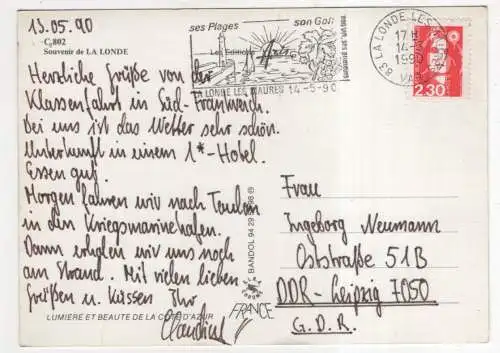 13.05.90
C 802
Souvenir de LA LONDE
Herzliche Grüße von der
Klassenfahrt in Süd-Frankreich.
Bei uns ist das Wetter sehr schön.
Unterkunft in einem 1*-Hotel.
Essen gut.
Morgen fahren wir nach Toulon
in den Kriegsmarinehafen.
Dann erholen wir uns noch
am Strand. Mit vielen lieben
Grüßen u. Küssen Ihr
LUMIÈRE ET BEAUTÉ DE LA CÔTE D'AZUR
ses Plages
son Golf
LA LONDE LES MAURES 14-5-90
83 LA LONDE LES
17H
14-5
1990
VAR
2,30
BANDOL 94 29
FRANCE
Frau
Ingeborg Neumann
Oststraße 51B
DDR-Leipzig 7050
G.D.R.